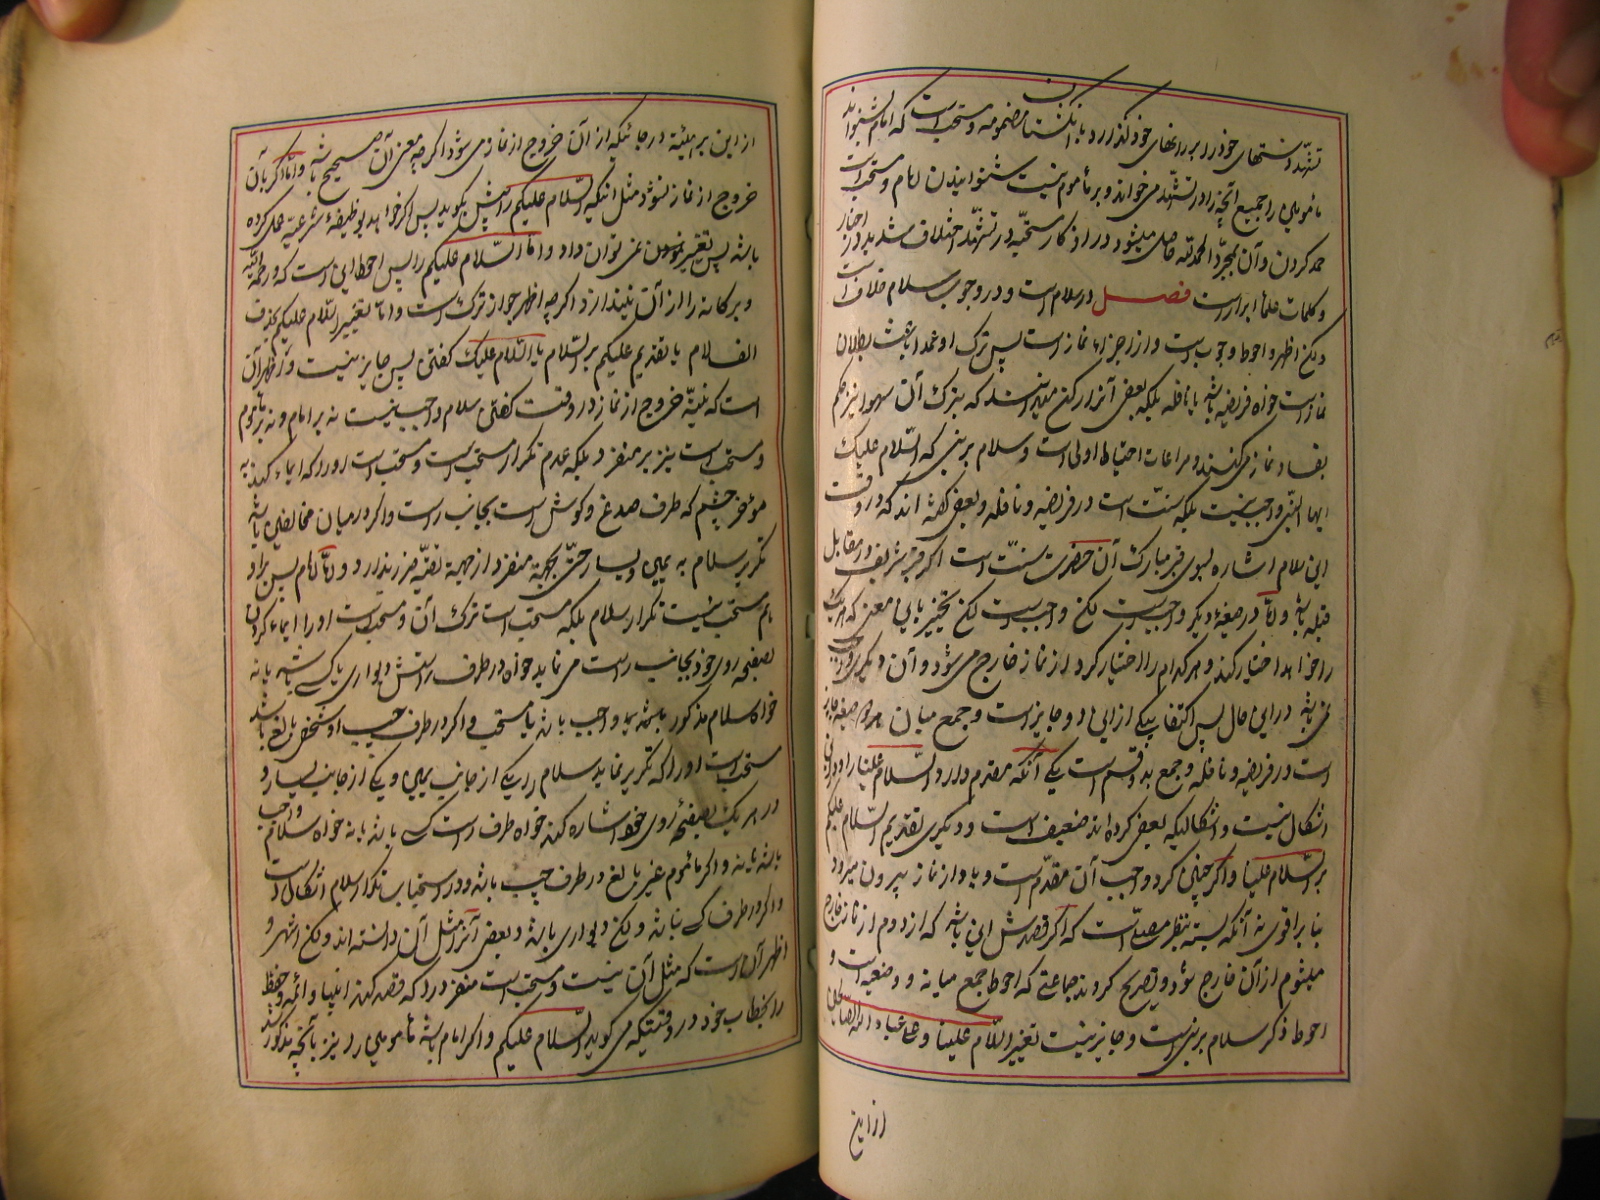 تشهد دستهای خود را بر رانهای خود گذارد با انگشتان مضمومه و مستحب است که امام بشنواند
مأمومین را جمیع آنچه را در تشهد میخواند و بر مأموم نیست شنوانیدن امام و مستحب است
حمد کردن و آن بمجرد الحمد لله حاصل میشود و در اذکار مستحبه در تشهد اختلاف شدید در اخبار
و کلمات علما ابرار است فصل در سلام است و در وجوب سلام خلاف است
ولکن اظهر و احوط وجوب است و از اجزاء نماز است پس ترک او عمدا باعث بطلان
نماز است خواه فریضه باشد یا نافله بلکه بعضی آنرا رکن میدانند که بترک آن سهوا نیز حکم
بفساد نماز میکنند و مراعات احتیاط اولی است و سلام بر نبی که السلام علیک
ایها النبی واجب نیست بلکه سنت است در فریضه و نافله و بعضی گفته اند که در وقت
این سلام اشاره بسوی قبر مبارک آن حضرت سنت است اگر قبر شریف در مقابل
قبله باشد و اما در صیغهٔ دیگر واجب است لکن واجب است لکن تخییر باین معنی که هر یک
را خواهد اختیار کند و هر کدام را اختیار کرد از نماز خارج می شود و آن دیگری
نمی باشد در این حال پس اکتفا بیکی از این دو جایز است و جمع میان هر دو صیغه جایز
است در فریضه و نافله و جمع بدو قسم است یکی آنکه مقدم دارد السلام علینا را و در این
اشکال نیست و اشکالیکه بعضی کرده اند ضعیف است و دیگری تقدیم السلام علیکم
بر السلام علینا و اگر چنین کرد واجب آن مقدم است و باو از نماز بیرون میرود
بنا بر اقوی نه آنکه بسته بنظر مصلی است که اگر قصدش این باشد که از دوم از نماز خارج
میشوم از آن خارج شود و تصریح کردند جماعتی که احوط جمع میانه دو وضعیه است و
احوط ذکر سلام بر نبی است و جایز نیست تغییر السلام علینا و علی عباد الله الصالحین
از این
از این بر هیئة در جائیکه از آن خروج از نماز می شود اگر چه معنی آن صحیح باشد و اما اگر بآن
خروج از نماز نشود مثل اینکه السلام علیکم را پیش بگوید پس اگر خواهد بوظیفهٔ شرعیه عمل کرده
باشد پس تغییر نمی توان داد و اما السلام علیکم را پس احوط این است که و رحمة الله
و برکاته را از آن نیندازد اگر چه اظهر جواز ترک است و اما تغییر السلام علیکم بحذف
الف لام یا تقدیم علیکم بر السلام یا السلام علیک گفتن پس جایز نیست و اظهر آن
است که نیة خروج از نماز در وقت گفتن سلام واجب نیست نه بر امام و نه بر مأموم
و مستحب است نیز بر منفرد بلکه عدم تکرار مستحب است و مستحب است او را که ایماء کند به
مؤخر چشم که طرف صدغ و گوش است بجانب راست و اگر در میان مخالفین باشد
تکریر سلام به یمین و یسار حتی بجهة منفرد از جهة تقیه ضرر ندارد و اما امام پس بر او
هم مستحب نیست تکرار سلام بلکه مستحب است ترک آن و مستحب است او را ایماء کردن
بصفحه روی خود بجانب راست می نماید خواه در طرف راستش دیواری یا کسی باشد یا نه
خواه سلام مذکور باشد واجب باشد یا مستحب و اگر در طرف چپ او شخص بالغ باشد
مستحب است او را که تکریر نماید سلام را یکی از جانب یمین و یکی از جانب یسار و
در هر یک بصفحهٔ روی خود اشاره کند خواه طرف راست کسی باشد یا نه خواه سلام واجب
باشد یا نه و اگر مأموم غیر بالغ در طرف چپ باشد در استحباب تکرار سلام اشکال است
و اگر در طرف کسی نباشد ولکن دیواری باشد و بعضی آنرا مثل آن دانسته اند ولکن اشهر و
اظهر آن است که مثل آن نیست و مستحب است منفرد را که قصد کند انبیا و ائمه و حفظه
را بخطاب خود در وقتیکه می گوید السلام علیکم و اگر امام باشد مأمومین را نیز بآنچه مذکور شد